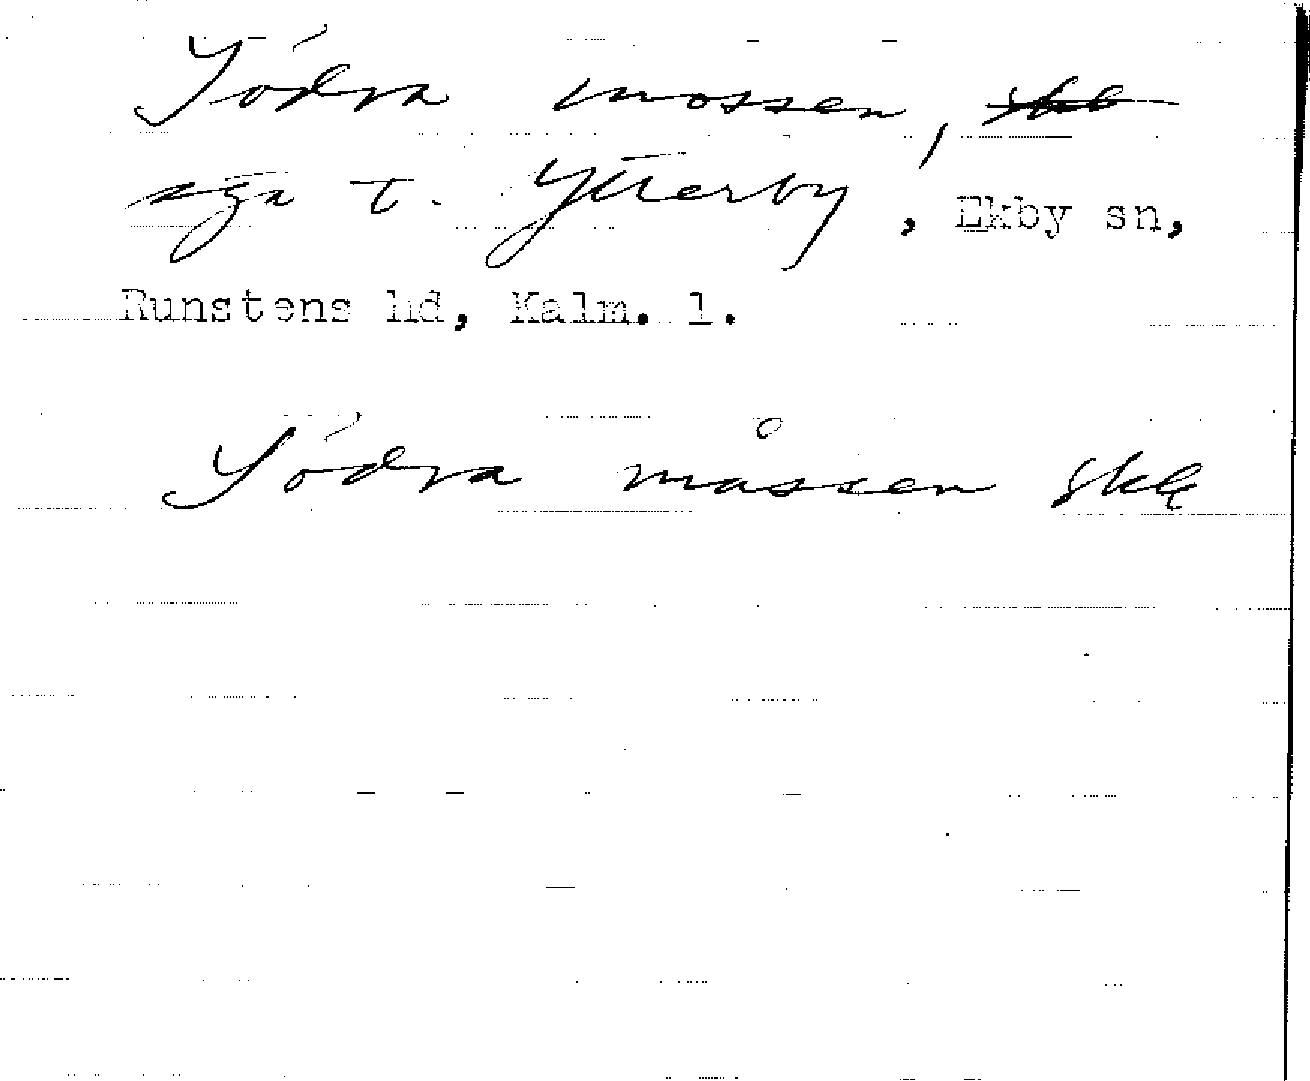 Södra mossen,
äga t. Ytterby, Ekby sn,
Runstens hd, Kalm. l.
Södra måssen